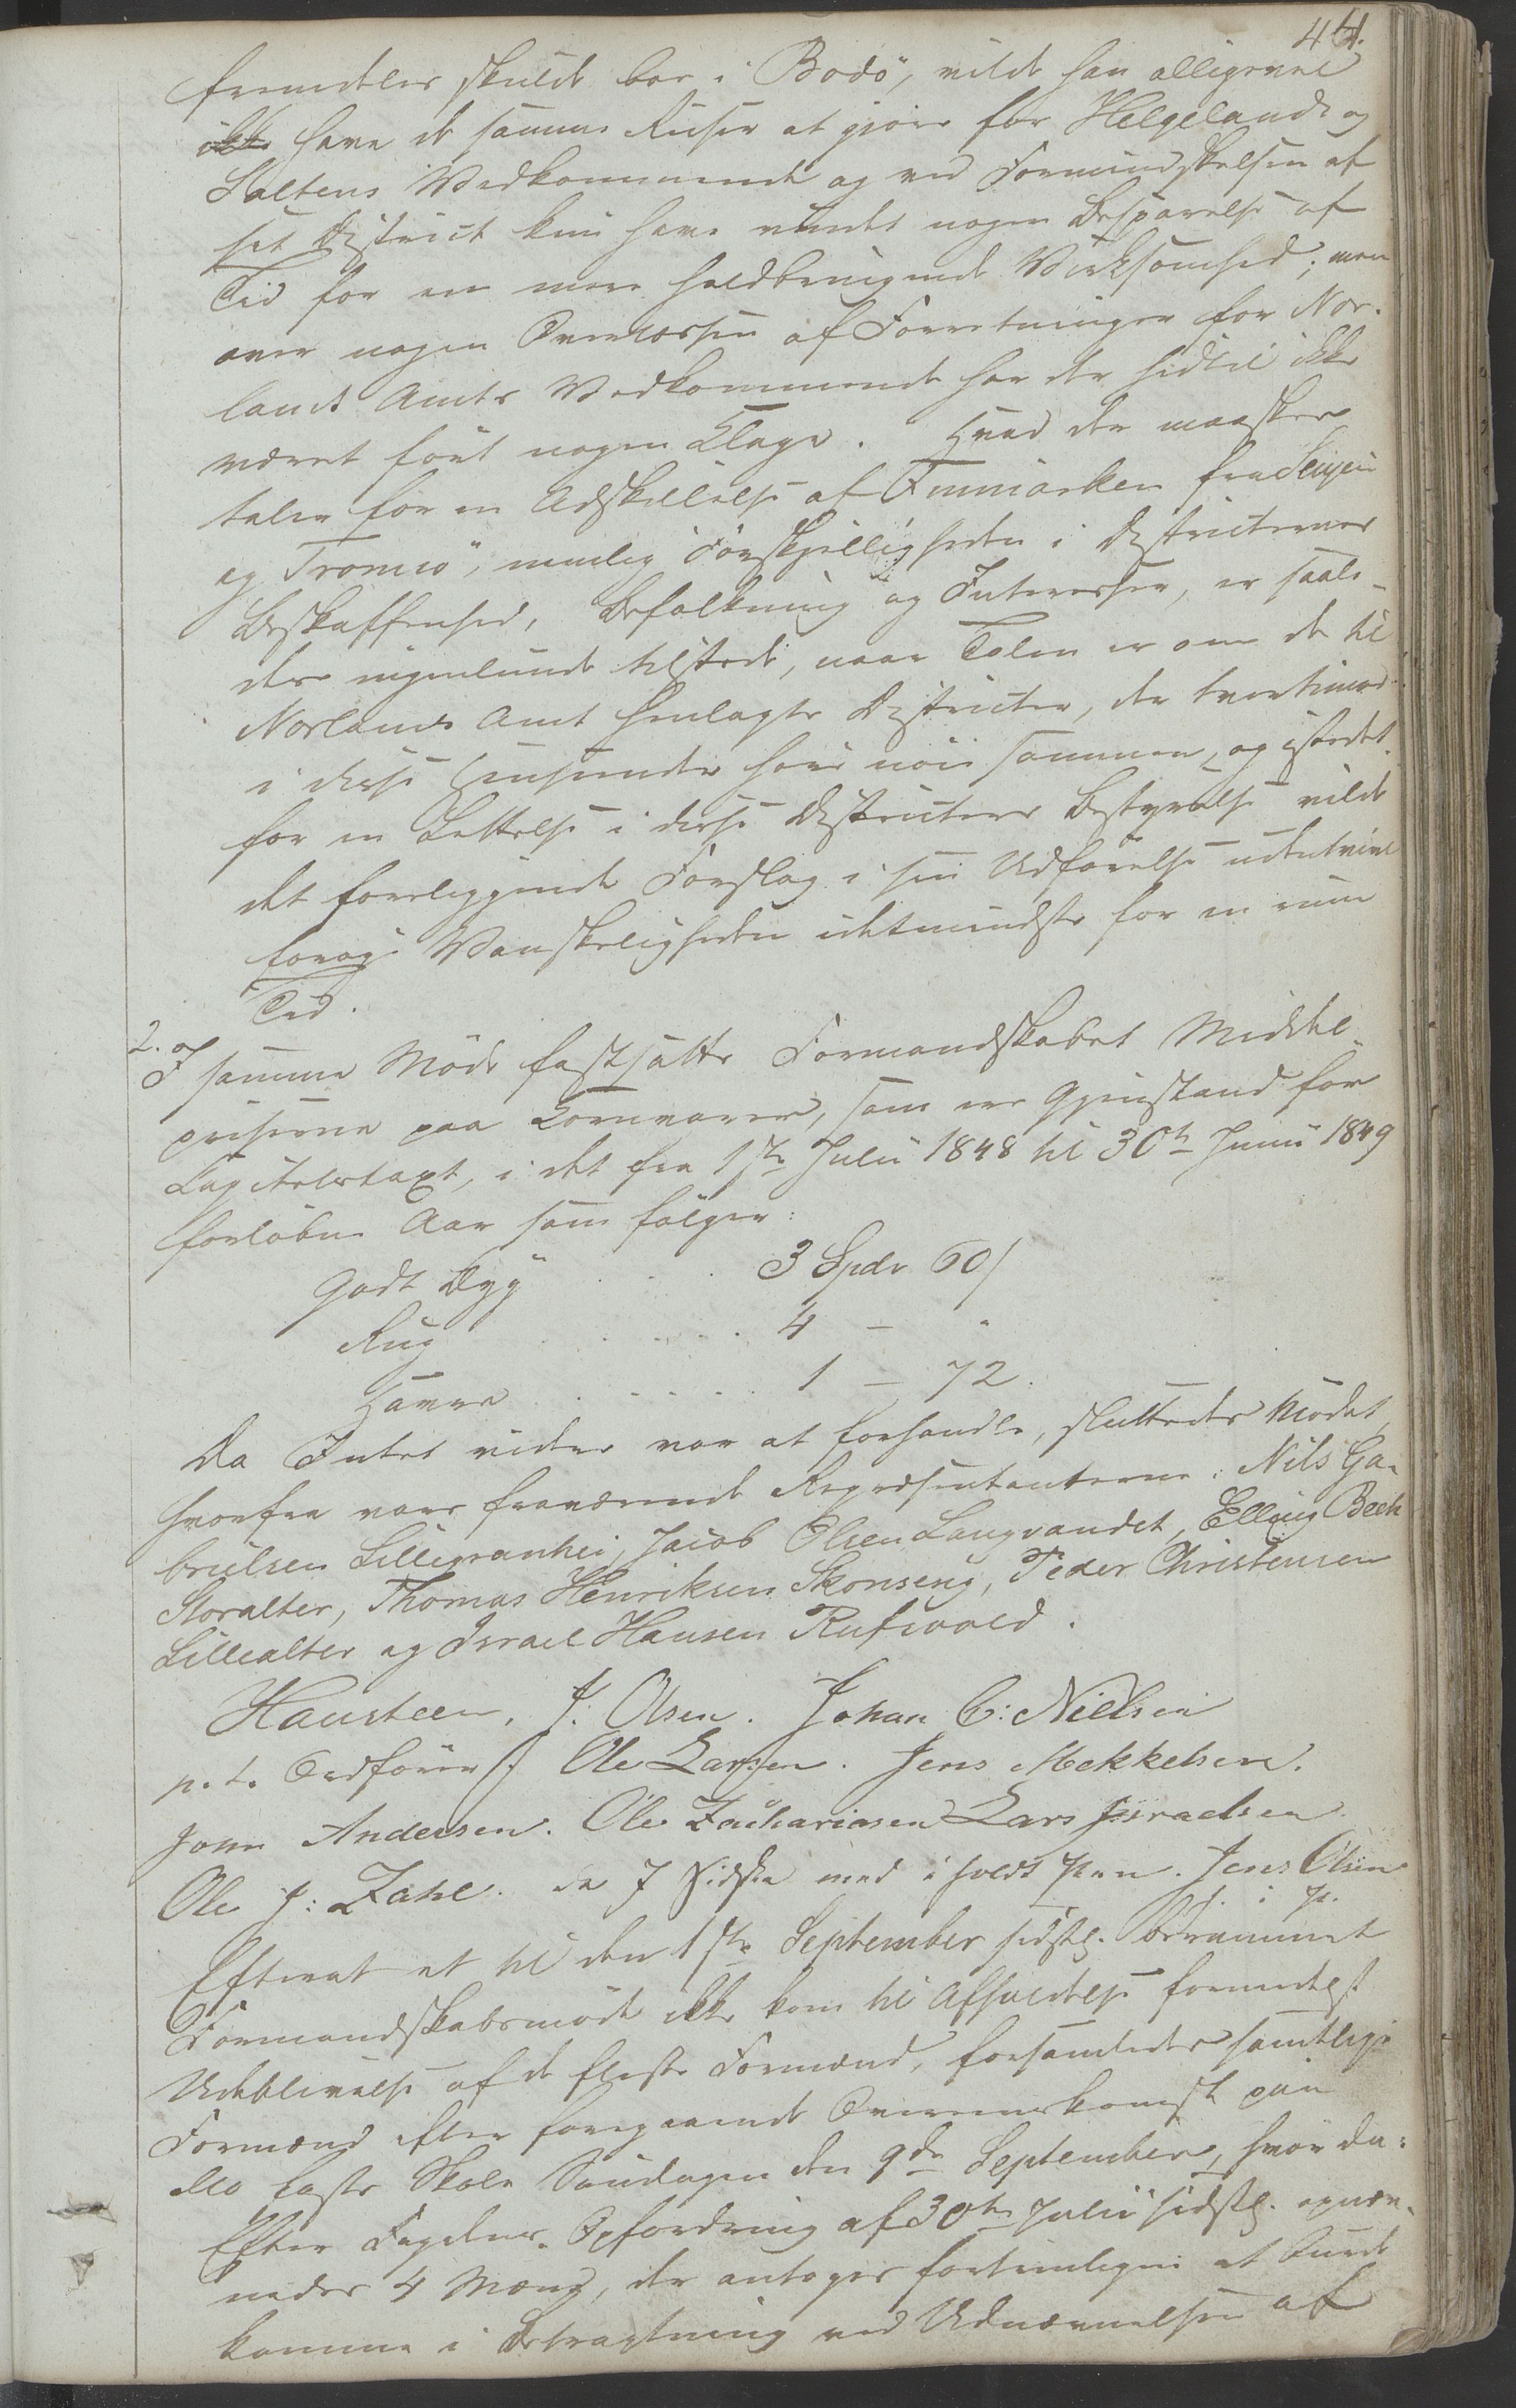 44.
fremdeles skulde boe i Bodö, vilde han alligevel
ikke have de samme Reiser at gjöre for Helgelands og
Saltens Vedkommende og ved Formindskelsen af
sit District kun have vundet nogen Besparelse af
Tid for en mere holdbringende Virksomhed; men
over nogen Overlæssen af Forretninger for Nor-
lands Amts Vedkommende har der hidtil ikke
været fört nogen Klage. Hvad der maaskee
taler for en Adskillelse af Finmarken fra Senjen
og Tromsö, nemlig Forskjelligheden i Districternes
Beskaffenhed, Befolkning og Interesser, er saale-
des ingenlunde tilstede, naar Talen er om de til
Norlands Amt henlagte Districter, der tvertimod
i disse Henseender höre nöie sammen, og istedet
for en Lettelse i disse Districters Bestyrelse vilde
det foreliggende Forslag i sin Udförelse udentvivl
foröge Vanskeligheden idetmindste for en rum
Tid.
2. I samme Möde fastsatte Formandskabet Middel-
priserne paa Kornvarer, som ere Gjenstand for
Capitelstaxt, i det fra 1ste Julii 1848 til 30te Junii 1849
forløbne Aar som fölger:
Godt Byg . . . 3 Spdr 60 /
Rug . . . . . 4 — "
Havre . . . . . 1 — 72.
Da Intet videre var at forhandle, sluttedes Mödet,
hvorfra vare fraværende Repræsentanterne: Nils Ga-
brielsen Lillegranhei, Jacob Olsen Langvandet, Elling Bech
Storalter, Thomas Henriksen Skonseng, Peder Christensen
Lillealter og Israel Hansen Rufsvold.
Hansteen, J. Olsen. Johan C: Nielsen
p. t. Ordförer Ole Larsen. Jens Mekkelsen.
John Andersen. Ole Zachariasen Lars Israelsen
Ole J: Zahl. de 7 Sidste med i holdt Pen. Jens Olsen
i P.
Efterat et til den 1ste September sidstl. berammet
Formandskabsmöde ikke kom til Afholdelse formedelst
Udeblivelse af de fleste Formænd, forsamledes samtlige
Formænd efter foregaaende Overenskomst paa
Mo faste Skole Söndagen den 9de September, hvor da:
Efter Fogdens Opfordring af 30te Julii sidstl. opnæv-
nedes 4 Mænd, der antoges fortrinligen at burde
komme i Betragtning ved Udnævnelsen af